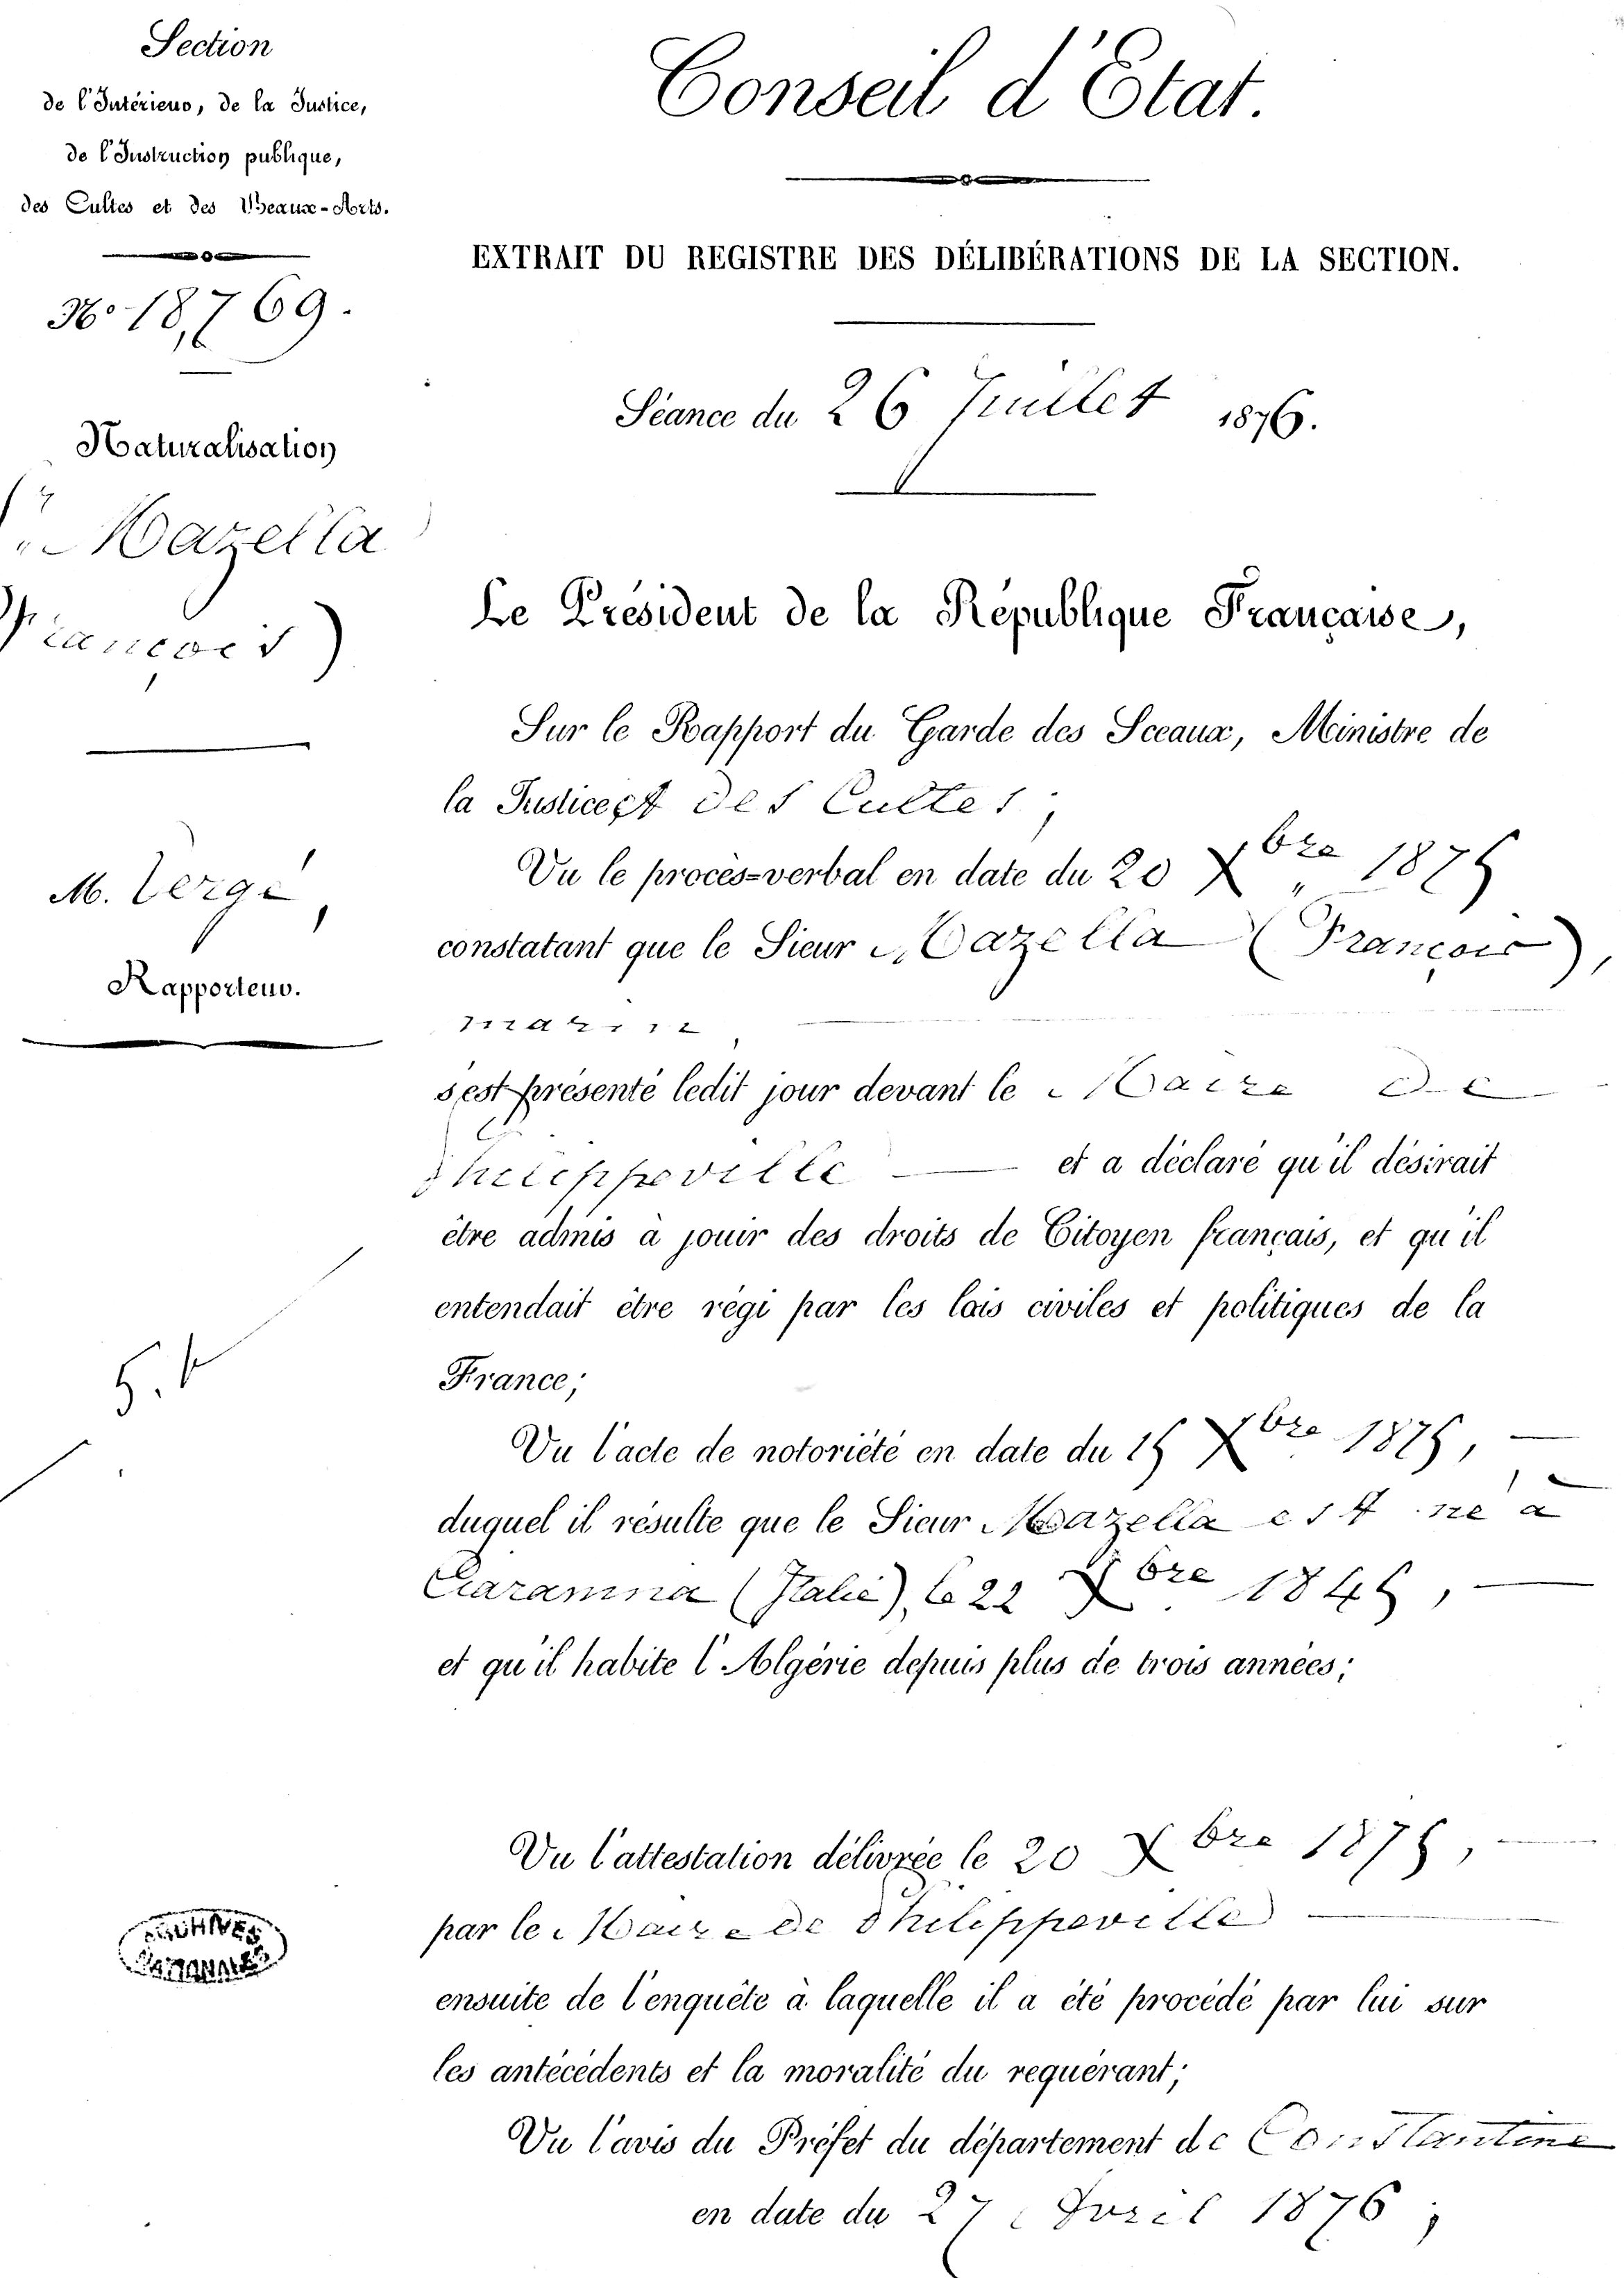 Section
de l'Intérieur, de la Justice,
de l'Instruction publique,
des Cultes et des Beaux-Arts.
N° 18,769.
Naturalisation
Mazella
François)
M. Vergé,
Rapporteur.
5.
Conseil d'Etat.
EXTRAIT DU REGISTRE DES DÉLIBÉRATIONS DE LA SECTION.
Séance du 26 Juillet 1876.
Le Président de la République Française,
Sur le Rapport du Garde des Sceaux, Ministre de
la Justice et des Cultes;
Vu le procès-verbal en date du 20 Xbre 1875
constatant que le Sieur Mazella (François),
marin,
s'est présenté ledit jour devant le Maire de
Philippeville et a déclaré qu'il désirait
être admis à jouir des droits de Citoyen français, et qu'il
entendait être régi par les lois civiles et politiques de la
France;
Vu l'acte de notoriété en date du 15 Xbre 1875,
duquel il résulte que le Sieur Mazella est né à
(Italie), le 22 Xbre 1845,
et qu'il habite l'Algérie depuis plus de trois années;
Vu l'attestation délivrée le 20 Xbre 1875,
par le Maire de Philippeville
ensuite de l'enquête à laquelle il a été procédé par lui sur
les antécédents et la moralité du requérant;
Vu l'avis du Préfet du département de Constantine
en date du 27 Avril 1876;